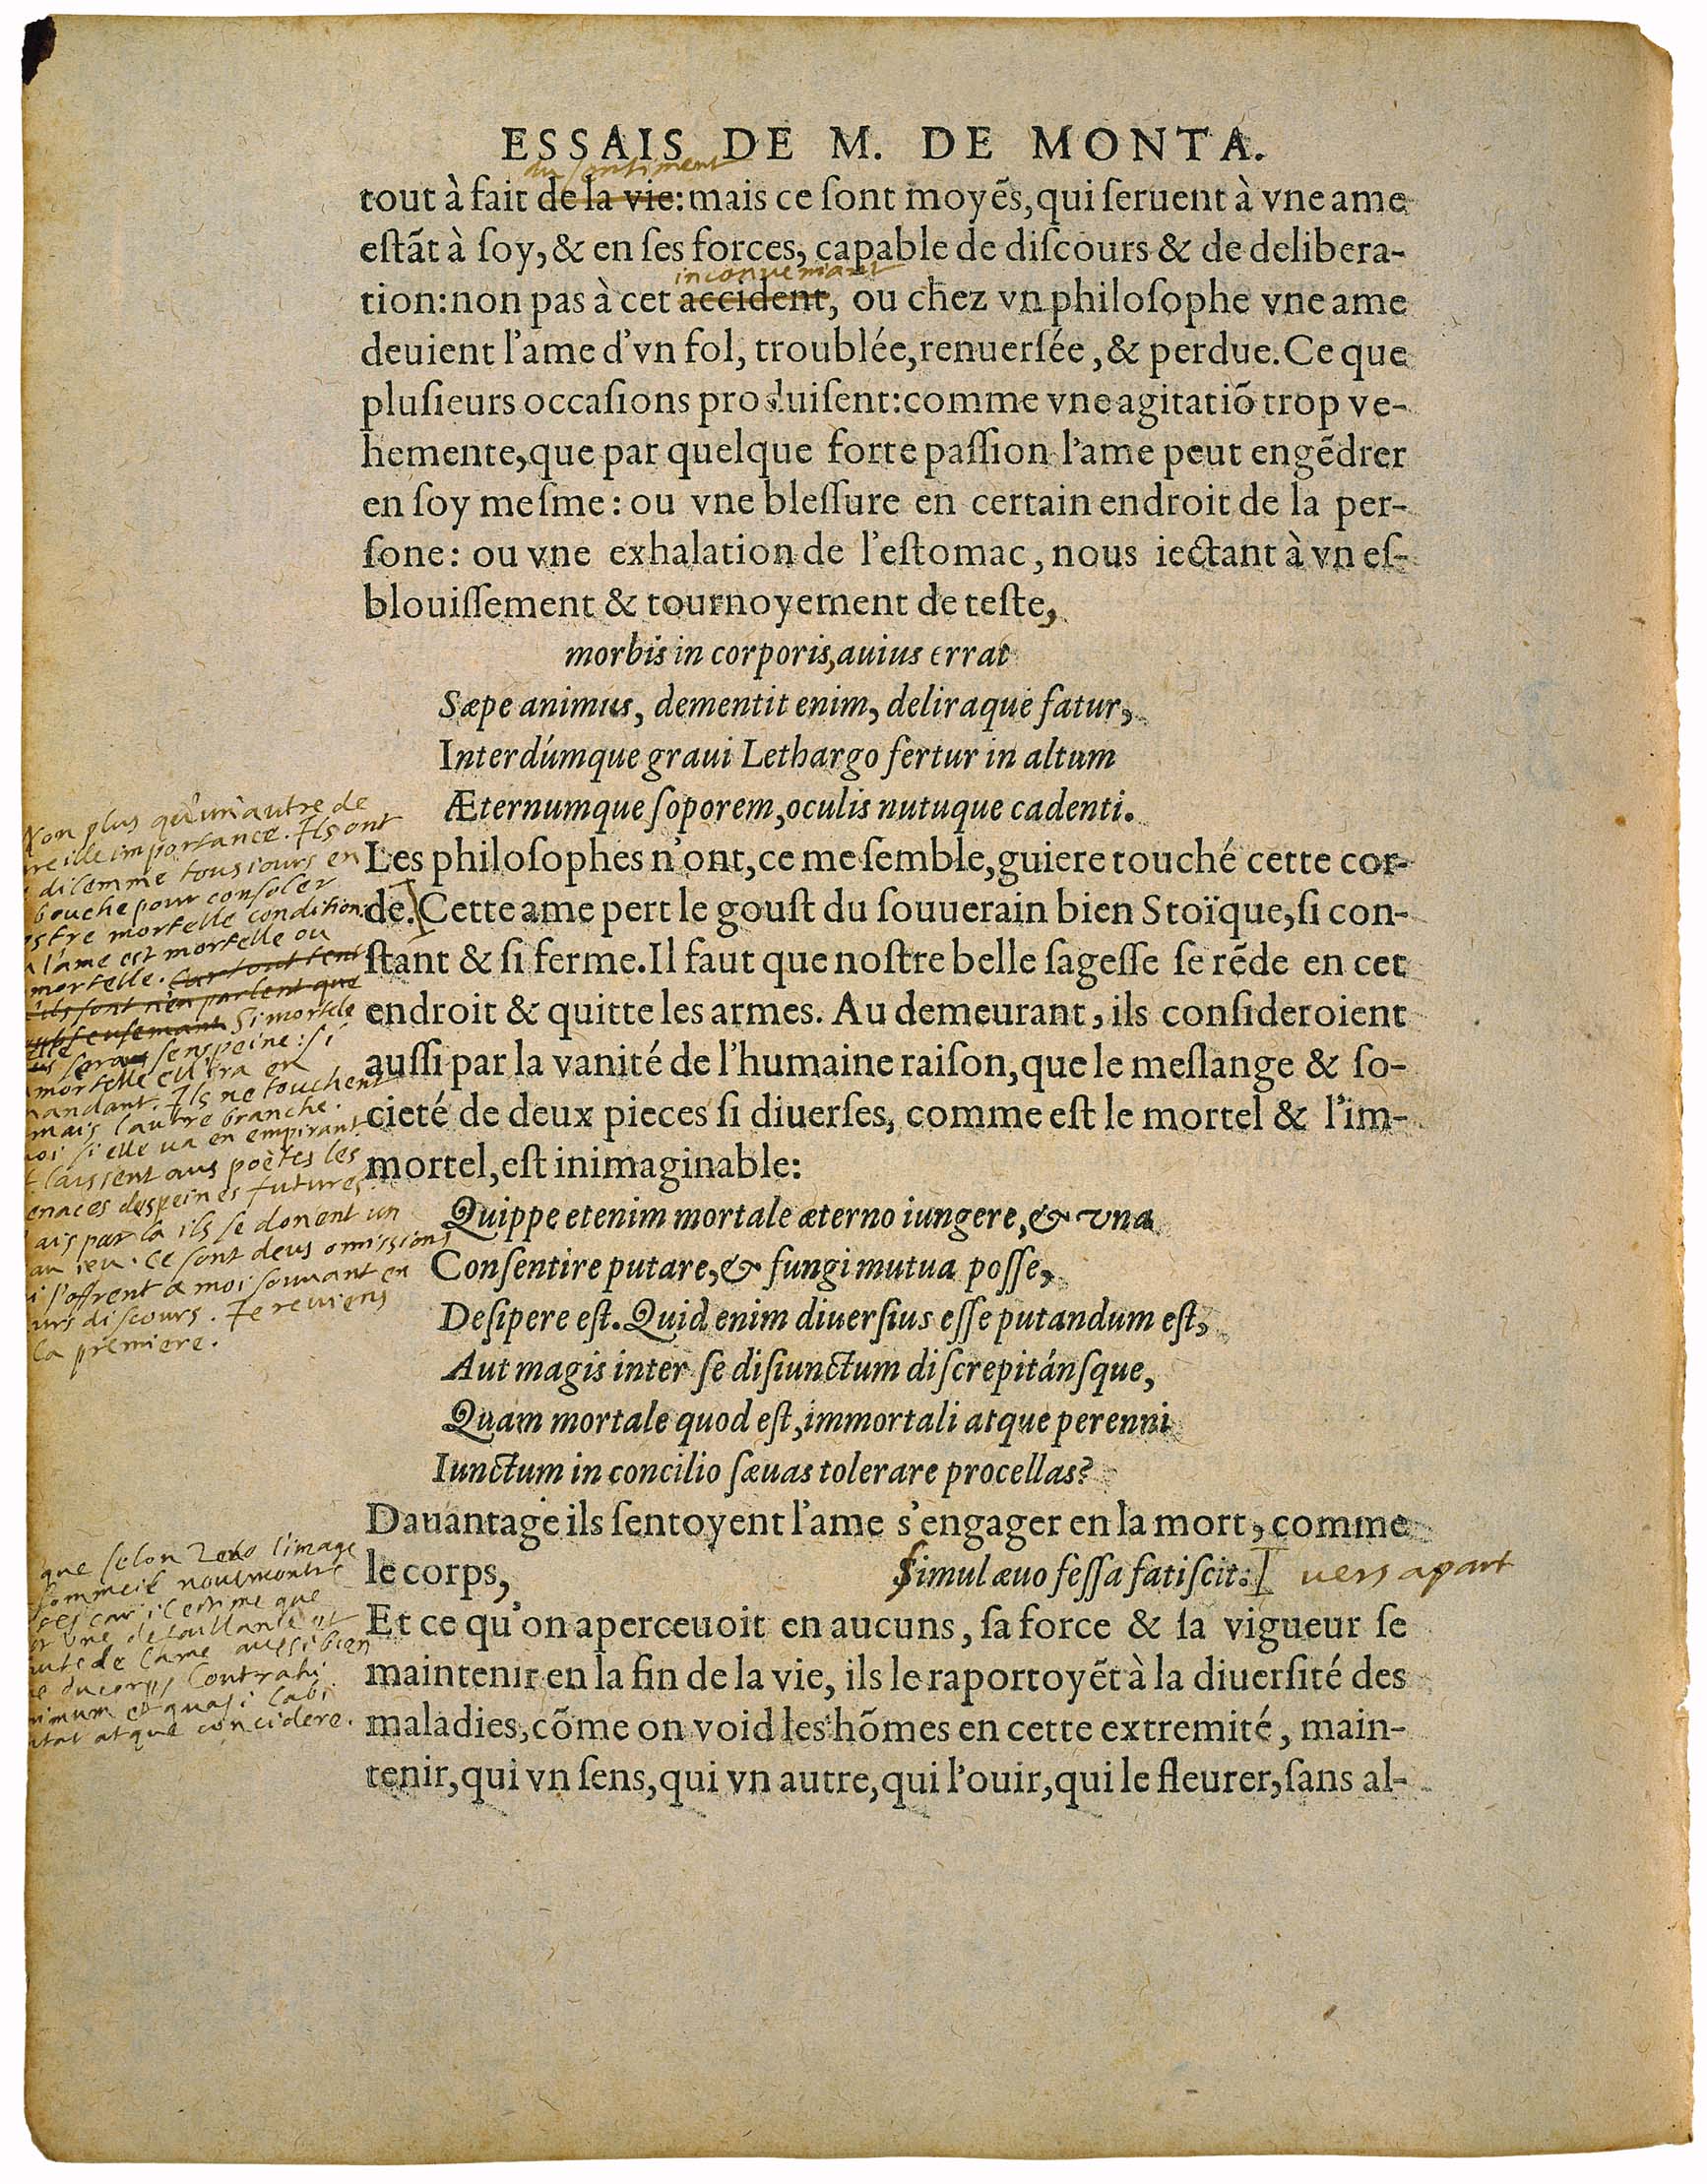 ESSAIS DE M. DE MONTA.
du sentiment
tout à fait de la vie: mais ce ſont moyẽs, qui ſeruent à vne ame
eſtãt à ſoy, & en ſes forces, capable de diſcours & de delibera-
inconueniant
tion: non pas à cet accident, ou chez vn philoſophe vne ame
deuient l'ame d'vn fol, troublée, renuerſée, & perdue. Ce que
pluſieurs occaſions produiſent: comme vne agitatiõ trop ve-
hemente, que par quelque forte paſſion l'ame peut engẽdrer
en ſoy meſme: ou vne bleſſure en certain endroit de la per-
ſone: ou vne exhalation de l'eſtomac, nous iectant à vn eſ-
blouiſſement & tournoyement de teſte,
morbis in corporis, auius errat
Sæpe animus, dementit enim, deliraque fatur,
Interdúmque graui Lethargo fertur in altum
Æternumque ſoporem, oculis nutuque cadenti.
Les philoſophes n'ont, ce me ſemble, guiere touché cette cor-
de. Cette ame pert le gouſt du ſouuerain bien Stoïque, ſi con-
ſtant & ſi ferme. Il faut que noſtre belle ſageſſe ſe rẽde en cet
endroit & quitte les armes. Au demeurant, ils conſideroient
auſſi par la vanité de l'humaine raiſon, que le meſlange & ſo-
cieté de deux pieces ſi diuerſes, comme eſt le mortel & l'im-
mortel, eſt inimaginable:
Quippe etenim mortale æterno iungere, & vna
Conſentire putare, & fungi mutua poſſe,
Deſipere eſt. Quid enim diuerſius eſſe putandum eſt,
Aut magis inter ſe diſiunctum diſcrepitánſque,
Quam mortale quod eſt, immortali atque perenni
Iunctum in concilio ſæuas tolerare procellas?
Dauantage ils ſentoyent l'ame s'engager en la mort, comme
le corps, Simul æuo feſſa fatiſcit: vers apart
Et ce qu'on aperceuoit en aucuns, ſa force & ſa vigueur ſe
maintenir en la fin de la vie, ils le raportoyẽt à la diuerſité des
maladies, cõme on void les hõmes en cette extremité, main-
tenir, qui vn ſens, qui vn autre, qui l'ouir, qui le fleurer, ſans al-
Non plus qu'un'autre de
reille importance. Ils ont
dilemme tousiours en
bouche pour consoler
ostre mortelle condition:
l'ame est mortelle ou
mortelle. Si mortele
elle sera sens peine: si
mortelle ell'ira en
mandant. Ils ne touchent
mais l'autre branche.
oi si elle va en empirant
t laissent aus poëtes les
enaces des peines futures.
ais par la ils se donent un
au ieu. Ce sont deus omissions
i s'offrent a moi souuant en
urs discours. Ie reuiens
la premiere.
que selon Zeno l'image
sommeil nous montre
ses car il estime que
st vne defaillance et
ute de l'ame aussi bien
e du corps Contrahi
nimum et quasi labi
utat atque concidere.